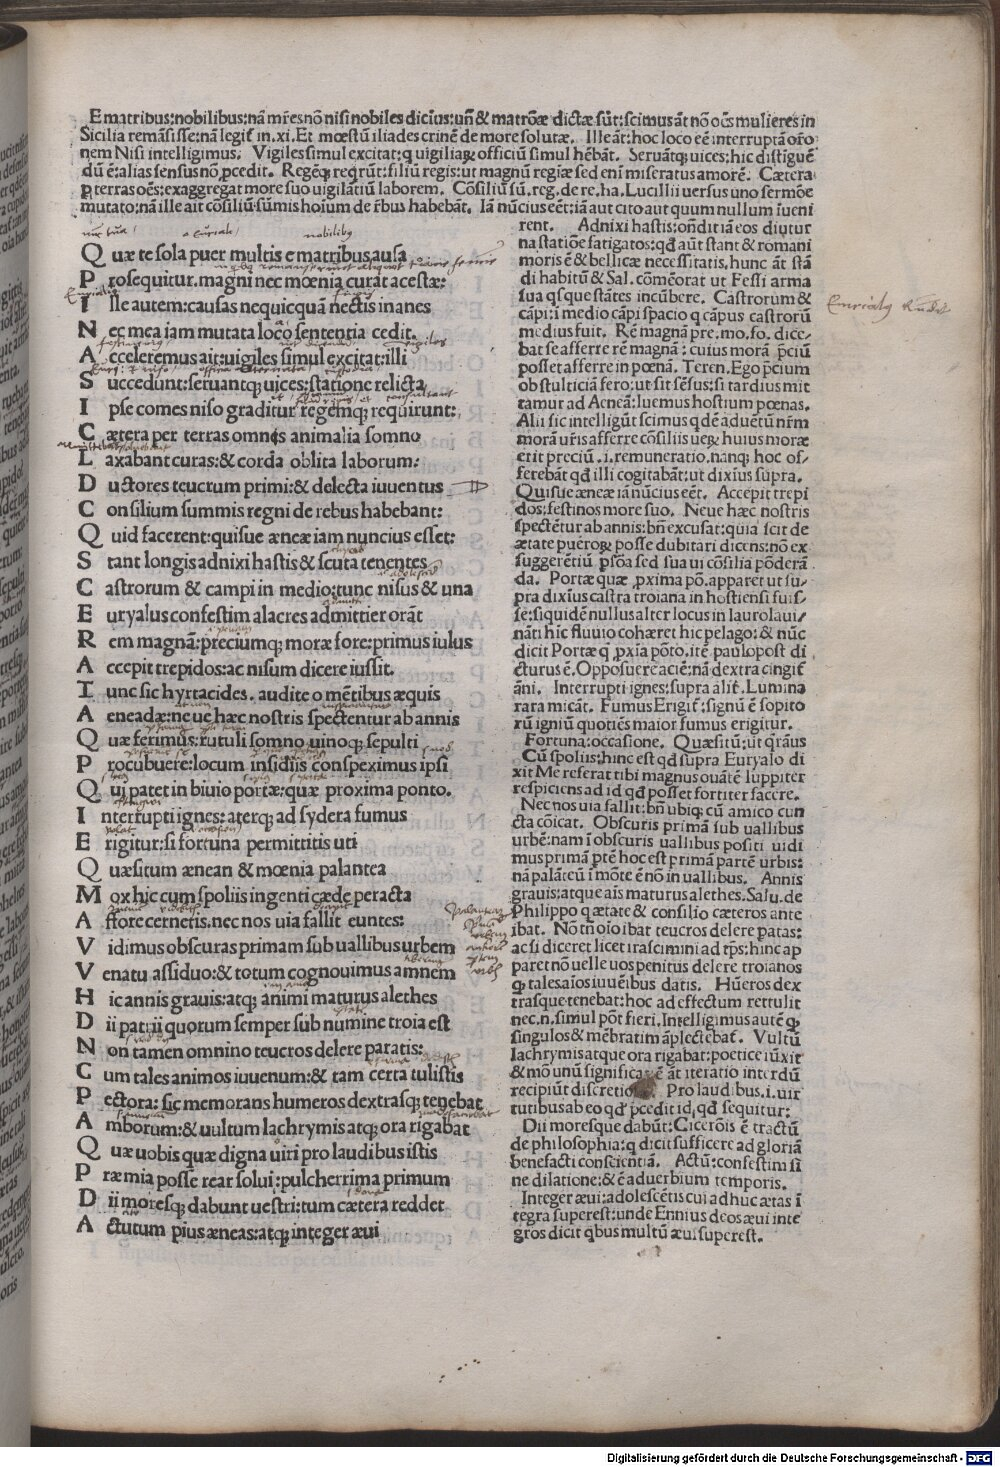 E matribus:nobilibus:nã mr̃es nõ nisi nobiles dicĩus:uñ & matrõæ dictæ sũt:scimus ãt nõ oẽs mulieres in
Sicilia remãsisse:nã legit̃ in.xi.Et mœstũ iliades crinẽ de more solutæ. Ille ãt:hoc loco eẽ interruptã or̃o
nem Nisi intelligimus. Vigiles simul excitat:q uigiliaꝝ officiũ simul hẽbãt. Seruãtq;uices:hic distiguẽ
dũ ẽ:alias sensus nõ ꝓcedit. Regẽq;reqr̃ũt:filiũ regis:ut magnũ regiæ sed eni miseratus amorẽ. Cætera
ꝑ terras oẽs:exaggerat more suo uigilãtiũ laborem. Cõsiliũ sũ.reg.de re.ha.Lucillii uersus uno sermõe
mutato:nã ille ait cõsiliũ sũmis hoium de r̃bus habebãt. Iã nũcius eẽt:iã aut cito aut quum nullum iueni
Q uæ te sola puer multis e matribus ausa
P rosequitur.magni nec mœnia curat acestæ:
I lle autem:causas nequicquã nectis inanes
N ec mea iam mutata loco sententia cedit.
A cceleremus ait:uigiles simul excitat:illi
S uccedunt:seruantq;uices:statione relicta
I pse comes niso graditur regemq;requirunt:
C ætera per terras omnes animalia somno
L axabant curas:& corda oblita laborum:
D uctores teucrum primi:& delecta iuuentus
C onsilium summis regni de rebus habebant:
Q uid facerent:quisue æneæ iam nuncius esset:
S tant longis adnixi hastis & scuta tenentes
C astrorum & campi in medio:tunc nisus & una
E uryalus confestim alacres admittier orãt
R em magnã:preciumq;moræ fore:primus iulus
A ccepit trepidos:ac nisum dicere iussit.
T unc sic hyrtacides.audite o mẽtibus æquis
A eneadæ:neue hæc nostris spectentur ab annis
Q uæ ferimus:rutuli somno uinoq;sepulti
P rocubuere:locum insidiis conspeximus ipsi
Q ui patet in biuio portæ:quæ proxima ponto.
I nterrupti ignes:aterq;ad sydera fumus
E rigitur:si fortuna permittitis uti
Q uæsitum ænean & mœnia palantea
M ox hic cum spoliis ingenti cæde peracta
A ffore cernetis.nec nos uia fallit euntes:
V idimus obscuras primam sub uallibus urbem
V enatu assiduo:& totum cognouimus amnem
H ic annis grauis:atq;animi maturus alethes
D ii patrii quorum semper sub numine troia est
N on tamen omnino teucros delere paratis:
C um tales animos iuuenum:& tam certa tulistis
P ectora:sic memorans humeros dextrasq;tenebat
A mborum:& uultum lachrymis atq;ora rigabat
Q uæ uobis quæ digna uiri pro laudibus istis
P ræmia posse rear solui:pulcherrima primum
D ii moresq;dabunt uestri:tum cætera reddet
A ctutum pius æneas:atq;integer æui
rent. Adnixi hastis:oñdit iã eos diutur
na statiõe fatigatos:qd̃ aũt stant & romani
moris ẽ & bellicæ necessitatis.hunc ãt stã
di habitũ & Sal.cõmẽorat ut Fessi arma
sua qsque stãtes incũbere. Castrorum &
cãpi:i medio cãpi spacio q cãpus castrorũ
medius fuit. Rẽ magnã pre.mo.fo.dice-
bat se afferre rẽ magnã:cuius morã p̃ciũ
posset afferre in pœnã. Teren.Ego p̃cium
ob stulticiã fero:ut sit sẽsus:si tardius mit
tamur ad Aeneã:luemus hostium pœnas.
Alii sic intelligũt scimus q de aduẽtũ nr̃m
morã ur̃is afferre cõsiliis ueꝝ huius moræ
erit preciũ.i.remuneratio.nanq;hoc of-
ferebãt qd̃ illi cogitabãt:ut dixĩus supra.
Quisue æneæ iã nũcius eẽt. Accepit trepi
dos:festinos more suo. Neue hæc nostris
spectẽtur ab annis:bñ excusat:quia scit de
ætate pueroꝝ posse dubitari dicens:nõ ex
suggerẽtiũ ꝑsõa sed sua ui cõsilia põderã
da. Portæ quæ ,pxima põ.apparet ut su-
pra dixĩus castra troiana in hostiensi fuis-
se:siquidẽ nullus alter locus in laurolaui-
nãti hic fluuio cohæret hic pelago:& nũc
dicit Portæ q ,pxĩa põto.itẽ paulopost di
cturus ẽ.Opposuere aciẽ:nã dextra cingit̃
ãni. Interrupti ignes:supra alit̃.Lumina
rara micãt. Fumus Erigit̃:signũ ẽ sopito
rũ igniũ quotiẽs maior fumus erigitur.
Fortuna:occasione. Quæsitũ:ut qrãus
Cũ spoliis:hinc est qd̃ supra Euryalo di
xit Me referat tibi magnus ouãtẽ Iuppiter
respiciens ad id qd̃ posset fortiter facere.
Nec nos uia fallit:bñ ubiq;cũ amico cun
cta cõicat. Obscuris primã sub uallibus
urbẽ:nam ĩ obscuris uallibus positi uidi
mus primã ptẽ hoc est primã partẽ urbis:
nã palãteũ i mõte ẽ nõ in uallibus. Annis
grauis:atque aĩs maturus alethes.Salu.de
Philippo q ætate & consilio cæteros ante
ibat. Nõ tñ oĩo ibat teucros delere patas:
ac si diceret licet irascimini ad tp̃s:hinc ap
paret nõ uelle uos penitus delere troianos
q; tales aĩos iuuẽibus datis. Hũeros dex
trasque tenebat:hoc ad effectum rettulit
nec.n.simul põt fieri.Intelligimus autẽ q;
singulos & mẽbratim ãplectebat̃. Vultũ
lachrymis atque ora rigabat:poetice iũxit
& mõ unũ significat ẽ ãt iteratio interdũ
recipiũt discretio Pro laudibus.i.uir
tutibus ab eo qd̃ p̃cedit id,qd̃ sequitur:
Dii moresque dabũt:Cicerõis ẽ tractũ
de philosophia:q dicit sufficere ad gloriã
benefacti conscientiã. Actũ:confestim si
ne dilatione:& ẽ aduerbium temporis.
Integer æui:adolescẽtis cui adhuc ætas ĩ
tegra superest:unde Ennius deos æui inte
gros dicit qbus multũ æui superest.
Digitalisierung gefördert durch die Deutsche Forschungsgemeinschaft - DFG